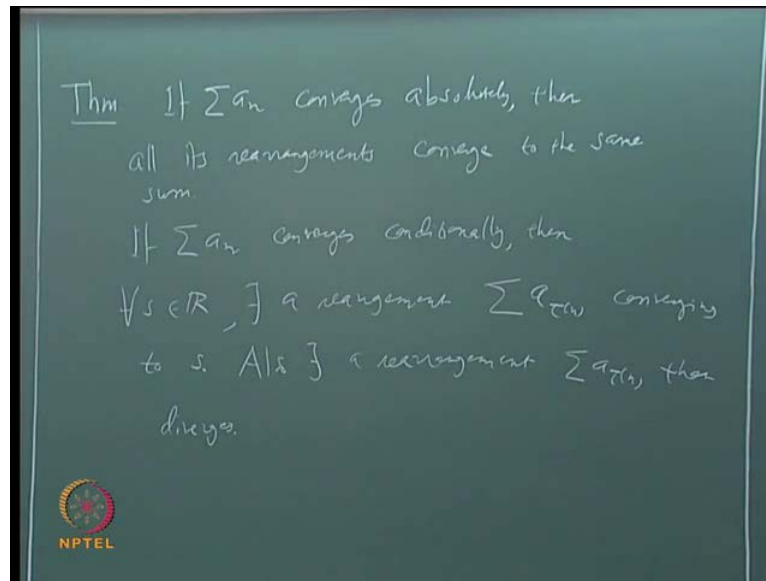 Thm If ∑ aₙ converges absolutely, then
all its rearrangements converge to the same
sum.
If ∑ aₙ converges conditionally, then
∀ s ∈ ℝ, ∃ a rearangement ∑ a_τ(n) converging
to s. Als ∃ a rearrangement ∑ a_τ(n) that
diverges.
NPTEL